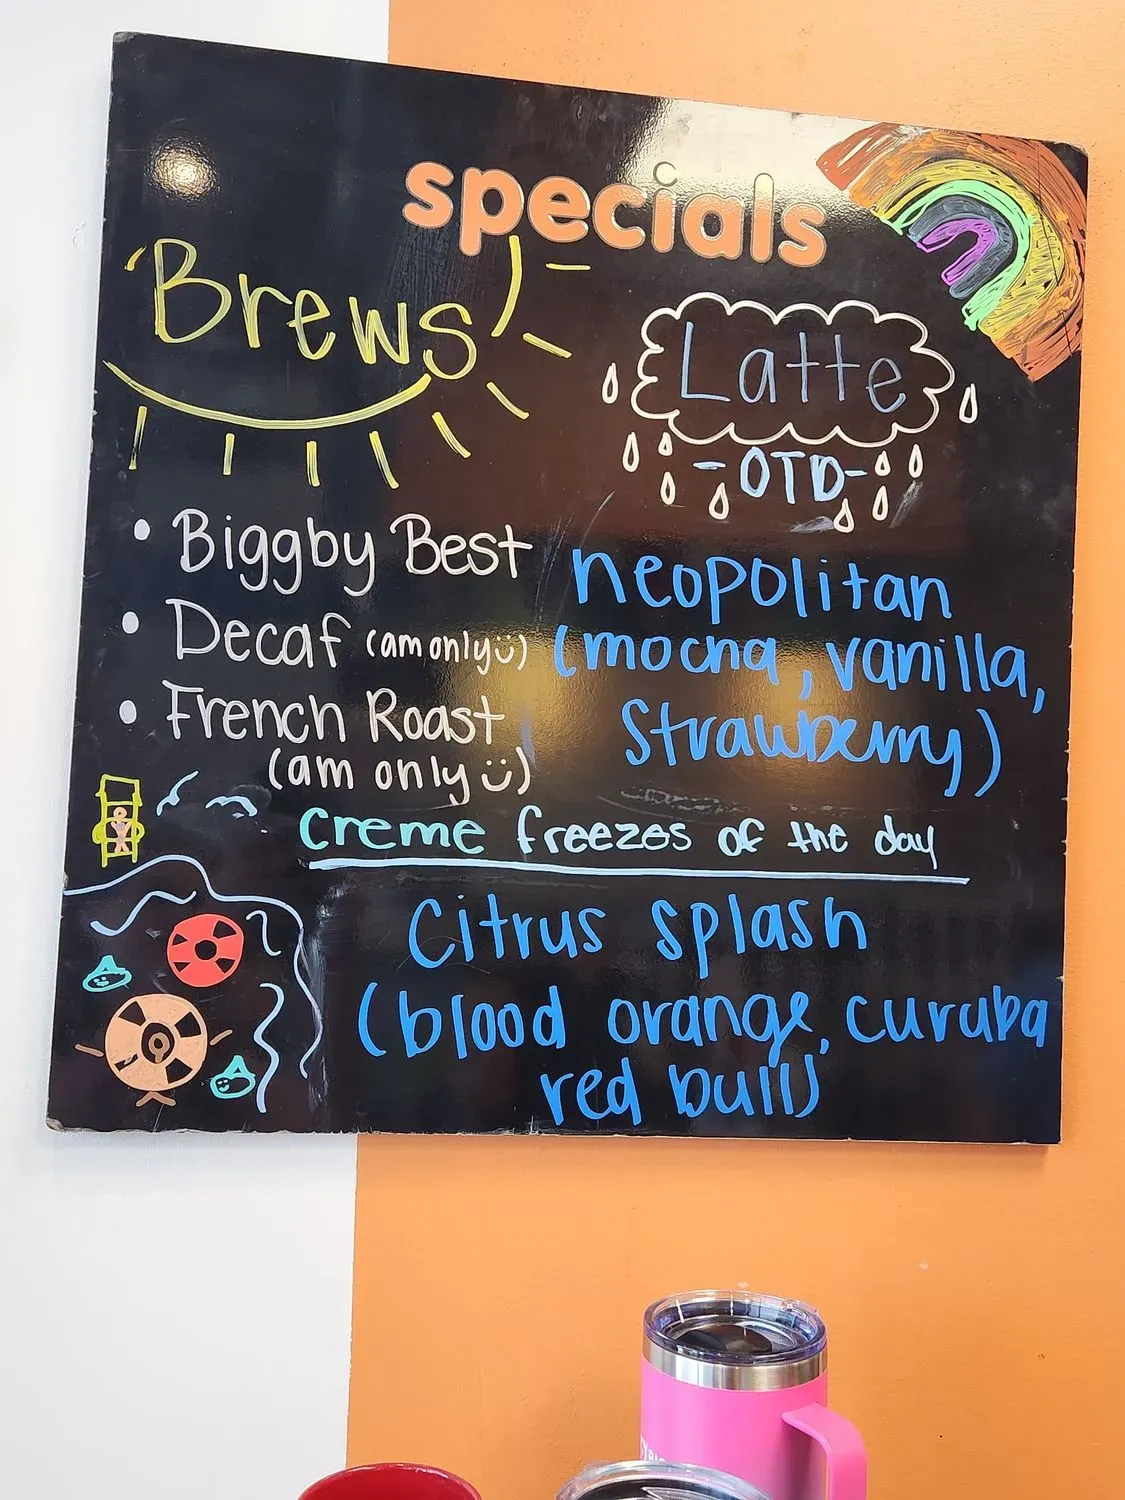 specials
Brews
• Biggby Best
• Decaf (am only ü)
• French Roast
(am only ü)
Latte
-OTD-
neopolitan
(mocha, vanilla,
Strawberry)
creme freezes of the day
Citrus splash
(blood orange, curuba
red bull)